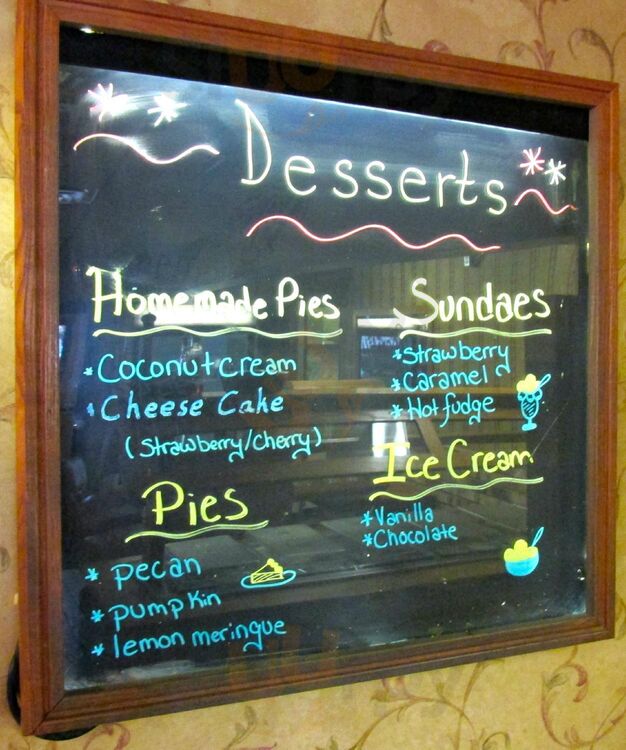 Desserts
Homemade Pies
*Coconut cream
*Cheese Cake
(Strawberry/Cherry)
Pies
* pecan
* pumpkin
* lemon meringue
Sundaes
*Strawberry
*Caramel
*Hot fudge
Ice Cream
*Vanilla
*Chocolate